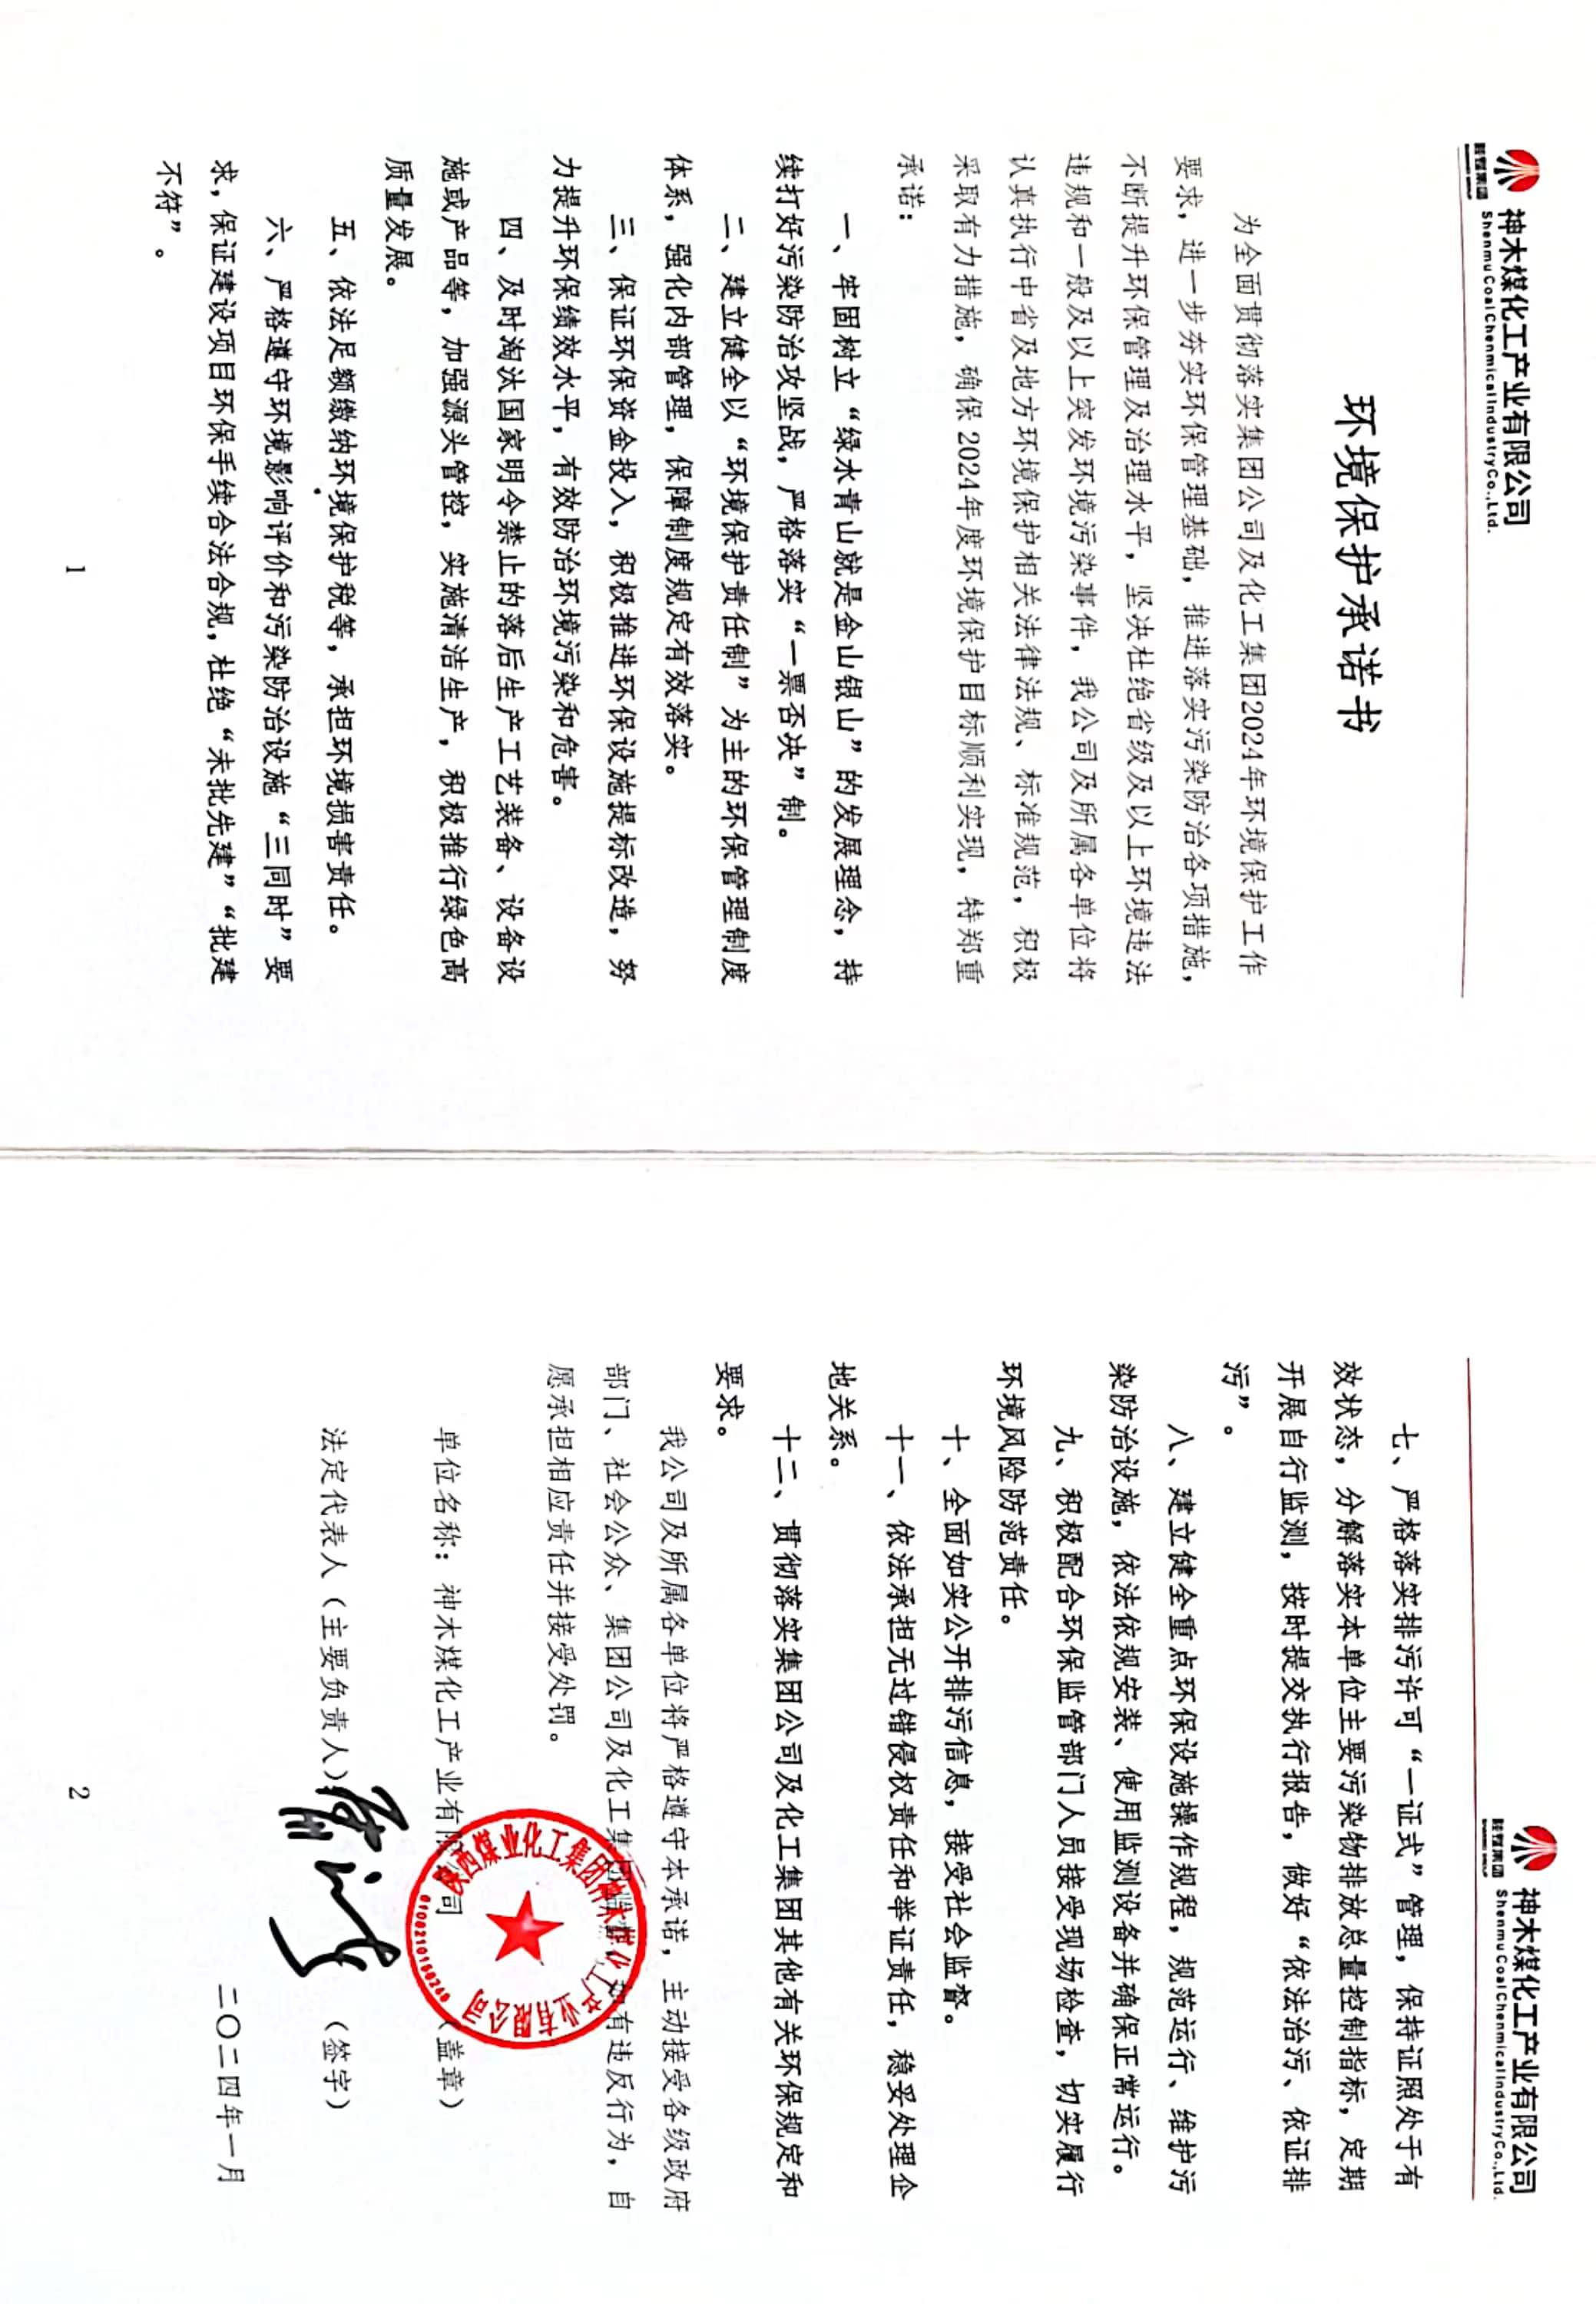 陕煤集团
神木煤化工产业有限公司
Shenmu Coal Chenmical Industry Co.,Ltd.
环境保护承诺书
为全面贯彻落实集团公司及化工集团2024年环境保护工作
要求，进一步夯实环保管理基础，推进落实污染防治各项措施，
不断提升环保管理及治理水平，坚决杜绝省级及以上环境违法
违规和一般及以上突发环境污染事件，我公司及所属各单位将
认真执行中省及地方环境保护相关法律法规、标准规范，积极
采取有力措施，确保2024年度环境保护目标顺利实现，特郑重
承诺：
一、牢固树立“绿水青山就是金山银山”的发展理念，持
续打好污染防治攻坚战，严格落实“一票否决”制。
二、建立健全以“环境保护责任制”为主的环保管理制度
体系，强化内部管理，保障制度规定有效落实。
三、保证环保资金投入，积极推进环保设施提标改造，努
力提升环保绩效水平，有效防治环境污染和危害。
四、及时淘汰国家明令禁止的落后生产工艺装备、设备设
施或产品等，加强源头管控，实施清洁生产，积极推行绿色高
质量发展。
五、依法足额缴纳环境保护税等，承担环境损害责任。
六、严格遵守环境影响评价和污染防治设施“三同时”要
求，保证建设项目环保手续合法合规，杜绝“未批先建”“批建
不符”。
1
陕煤集团
神木煤化工产业有限公司
Shenmu Coal Chenmical Industry Co.,Ltd.
七、严格落实排污许可“一证式”管理，保持证照处于有
效状态，分解落实本单位主要污染物排放总量控制指标，定期
开展自行监测，按时提交执行报告，做好“依法治污、依证排
污”。
八、建立健全重点环保设施操作规程，规范运行、维护污
染防治设施，依法依规安装、使用监测设备并确保正常运行。
九、积极配合环保监管部门人员接受现场检查，切实履行
环境风险防范责任。
十、全面如实公开排污信息，接受社会监督。
十一、依法承担无过错侵权责任和举证责任，稳妥处理企
地关系。
十二、贯彻落实集团公司及化工集团其他有关环保规定和
要求。
我公司及所属各单位将严格遵守本承诺，主动接受各级政府
部门、社会公众、集团公司及化工集团监督，如有违反行为，自
愿承担相应责任并接受处罚。
单位名称：神木煤化工产业有限公司（盖章）
陕西煤业化工集团神木煤化工产业有限公司
法定代表人（主要负责人）：（签字）
二〇二四年一月
2